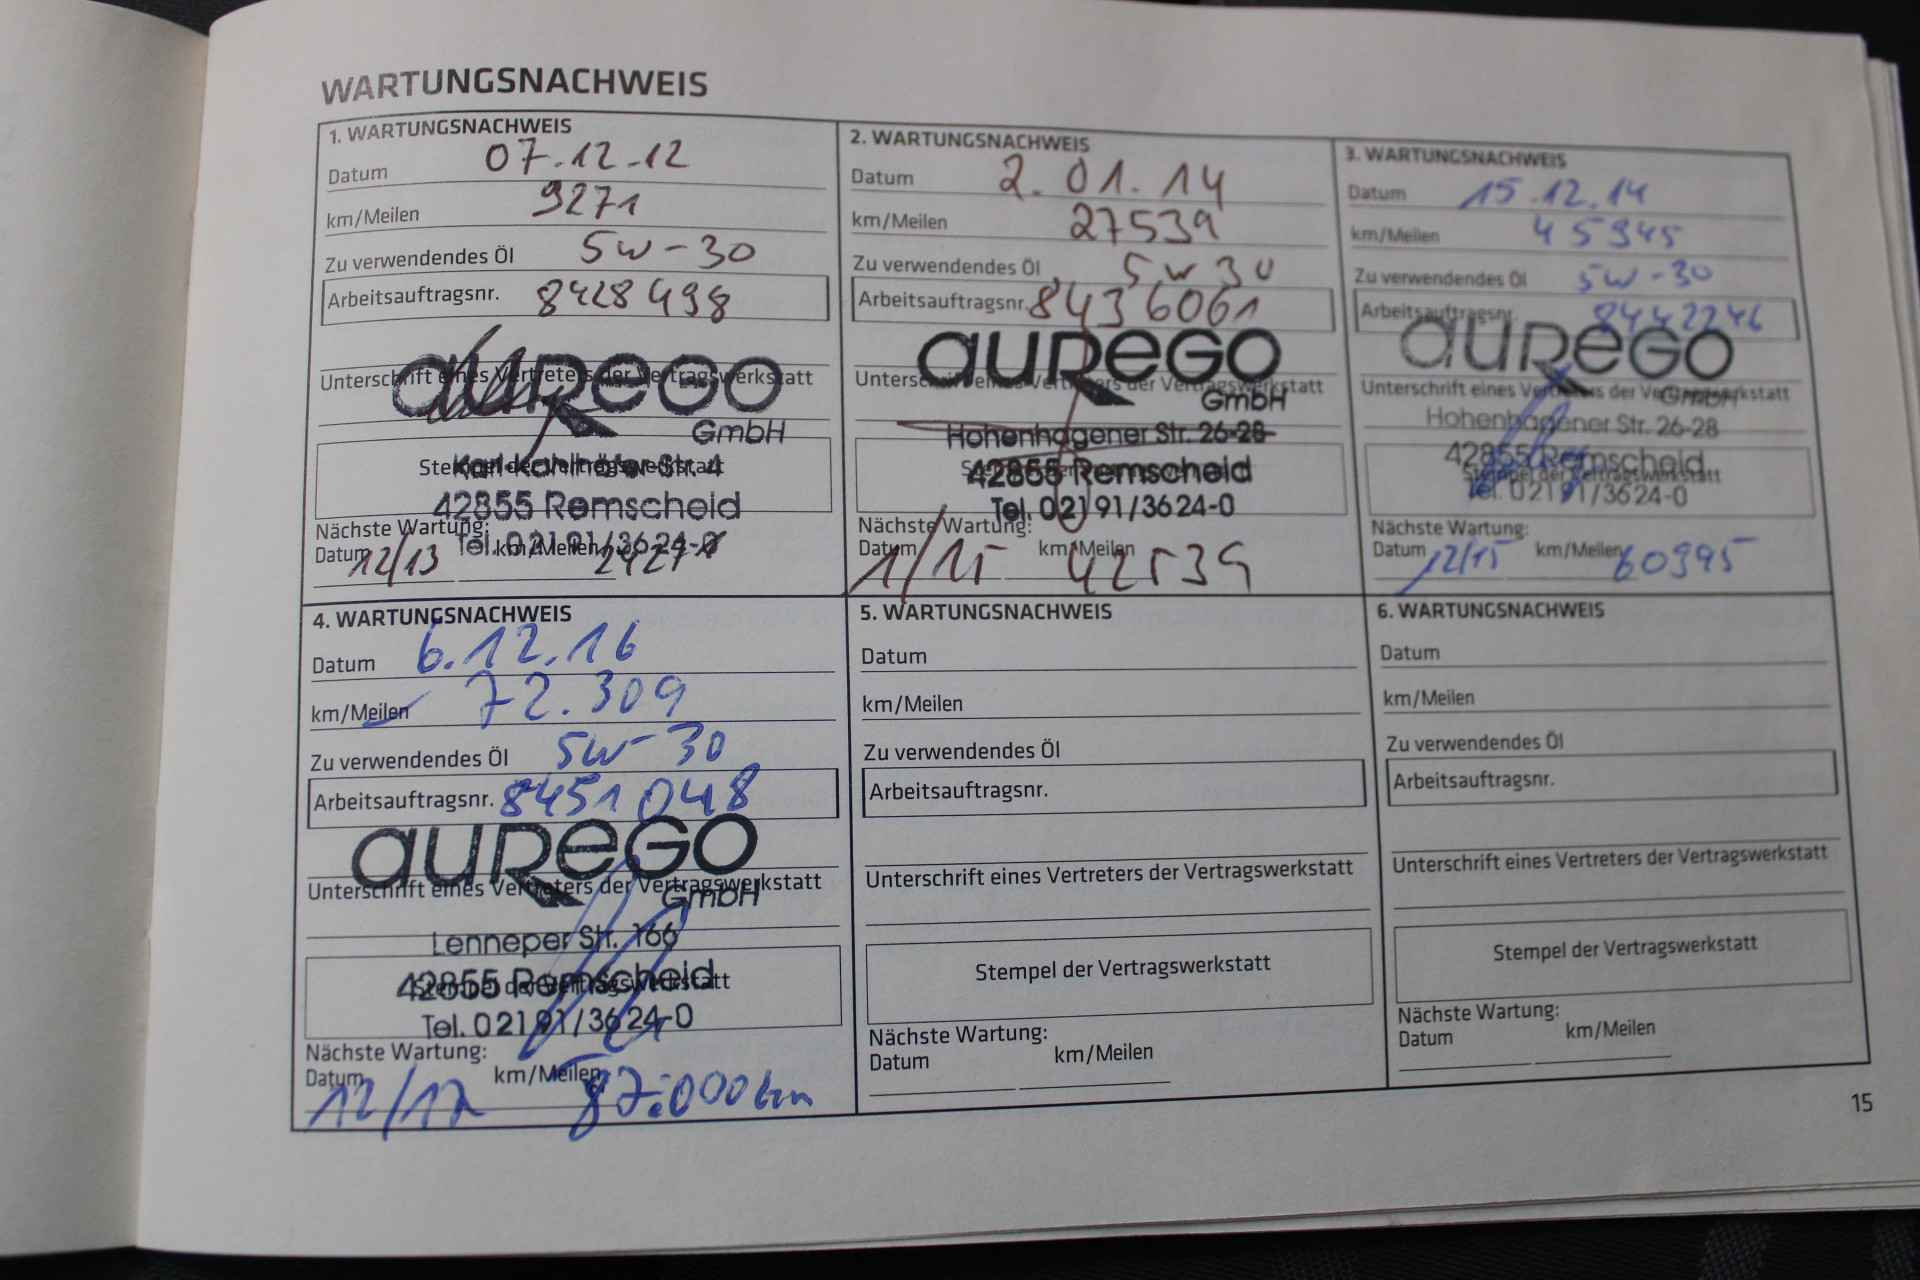 WARTUNGSNACHWEIS
1. WARTUNGSNACHWEIS
Datum 07.12.12
km/Meilen 9271
Zu verwendendes Öl 5w-30
Arbeitsauftragsnr. 8428498
aurego
Unterschrift eines Vertreters der Vertragswerkstatt
GmbH
Stempel der Vertragswerkstatt
Str. 4
42855 Remscheid
Nächste Wartung:
Tel. 02191/3624-0
Datum 12/13 km/Meilen 24271
2. WARTUNGSNACHWEIS
Datum 2.01.14
km/Meilen 27539
Zu verwendendes Öl 5w30
Arbeitsauftragsnr. 8436061
aurego
Unterschrift eines Vertreters der Vertragswerkstatt
GmbH
Hohenhagener Str. 26-28
Stempel der Vertragswerkstatt
42855 Remscheid
Tel. 02191/3624-0
Nächste Wartung:
Datum 1/15 km/Meilen 42539
3. WARTUNGSNACHWEIS
Datum 15.12.14
km/Meilen 45945
Zu verwendendes Öl 5w-30
Arbeitsauftragsnr. 8442246
aurego
Unterschrift eines Vertreters der Vertragswerkstatt
GmbH
Hohenhagener Str. 26-28
42855 Remscheid
Stempel der Vertragswerkstatt
Tel. 02191/3624-0
Nächste Wartung:
Datum 12/15 km/Meilen 60945
4. WARTUNGSNACHWEIS
Datum 6.12.16
km/Meilen 72.309
Zu verwendendes Öl 5w-30
Arbeitsauftragsnr. 8451048
aurego
Unterschrift eines Vertreters der Vertragswerkstatt
GmbH
Lenneper Str. 166
42855 Remscheid
Stempel der Vertragswerkstatt
Tel. 02191/3624-0
Nächste Wartung:
Datum 12/17 km/Meilen 87.000km
5. WARTUNGSNACHWEIS
Datum
km/Meilen
Zu verwendendes Öl
Arbeitsauftragsnr.
Unterschrift eines Vertreters der Vertragswerkstatt
Stempel der Vertragswerkstatt
Nächste Wartung:
Datum km/Meilen
6. WARTUNGSNACHWEIS
Datum
km/Meilen
Zu verwendendes Öl
Arbeitsauftragsnr.
Unterschrift eines Vertreters der Vertragswerkstatt
Stempel der Vertragswerkstatt
Nächste Wartung:
Datum km/Meilen
15